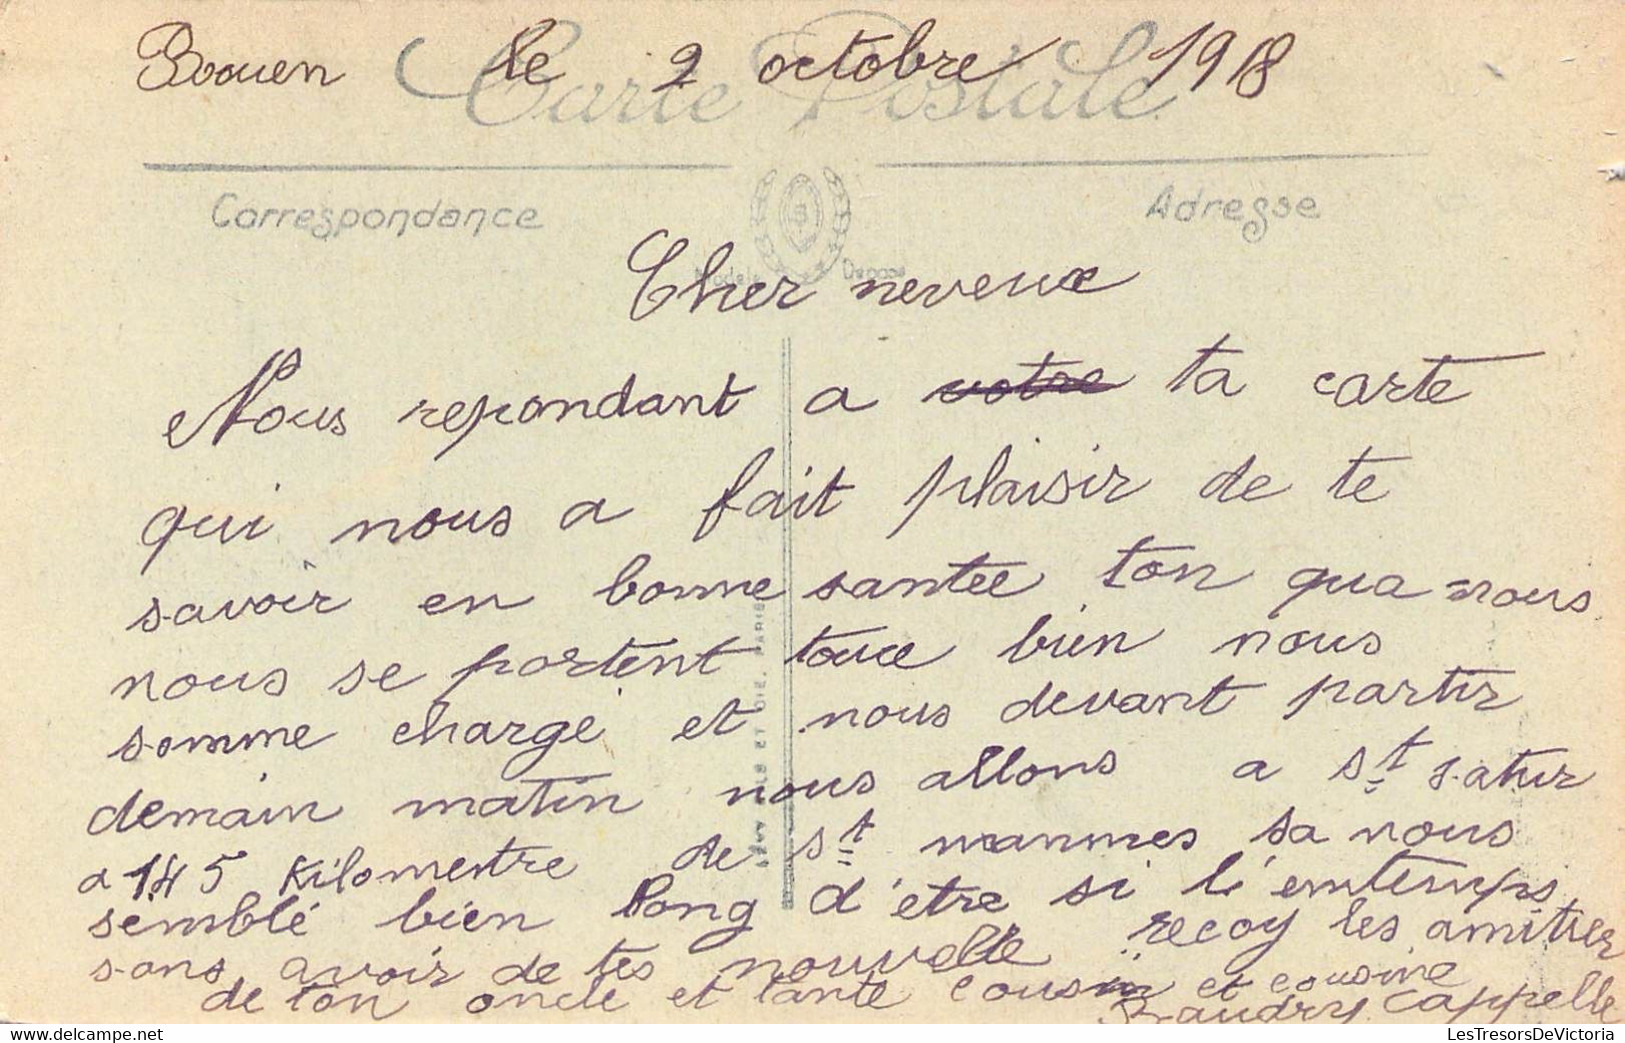 Rouen le 2 octobre 1918
Carte Postale
Correspondance
Adresse
Modèle Déposé
Cher neveux
Nous repondant a votre ta carte
qui nous a fait plaisir de te
savoir en bonne santee ton qua nous
nous se portent toux bien nous
somme chargé et nous devant partir
demain matin nous allons a St Satur
a 145 Kilomentre de St mammes sa nous
semblé bien long d'etre si l'emtemps
sans avoir de tes nouvelle recoy les amitier
de ton oncle et tante cousin et cousine
Baudry Cappelle
LesTresorsDeVictoria